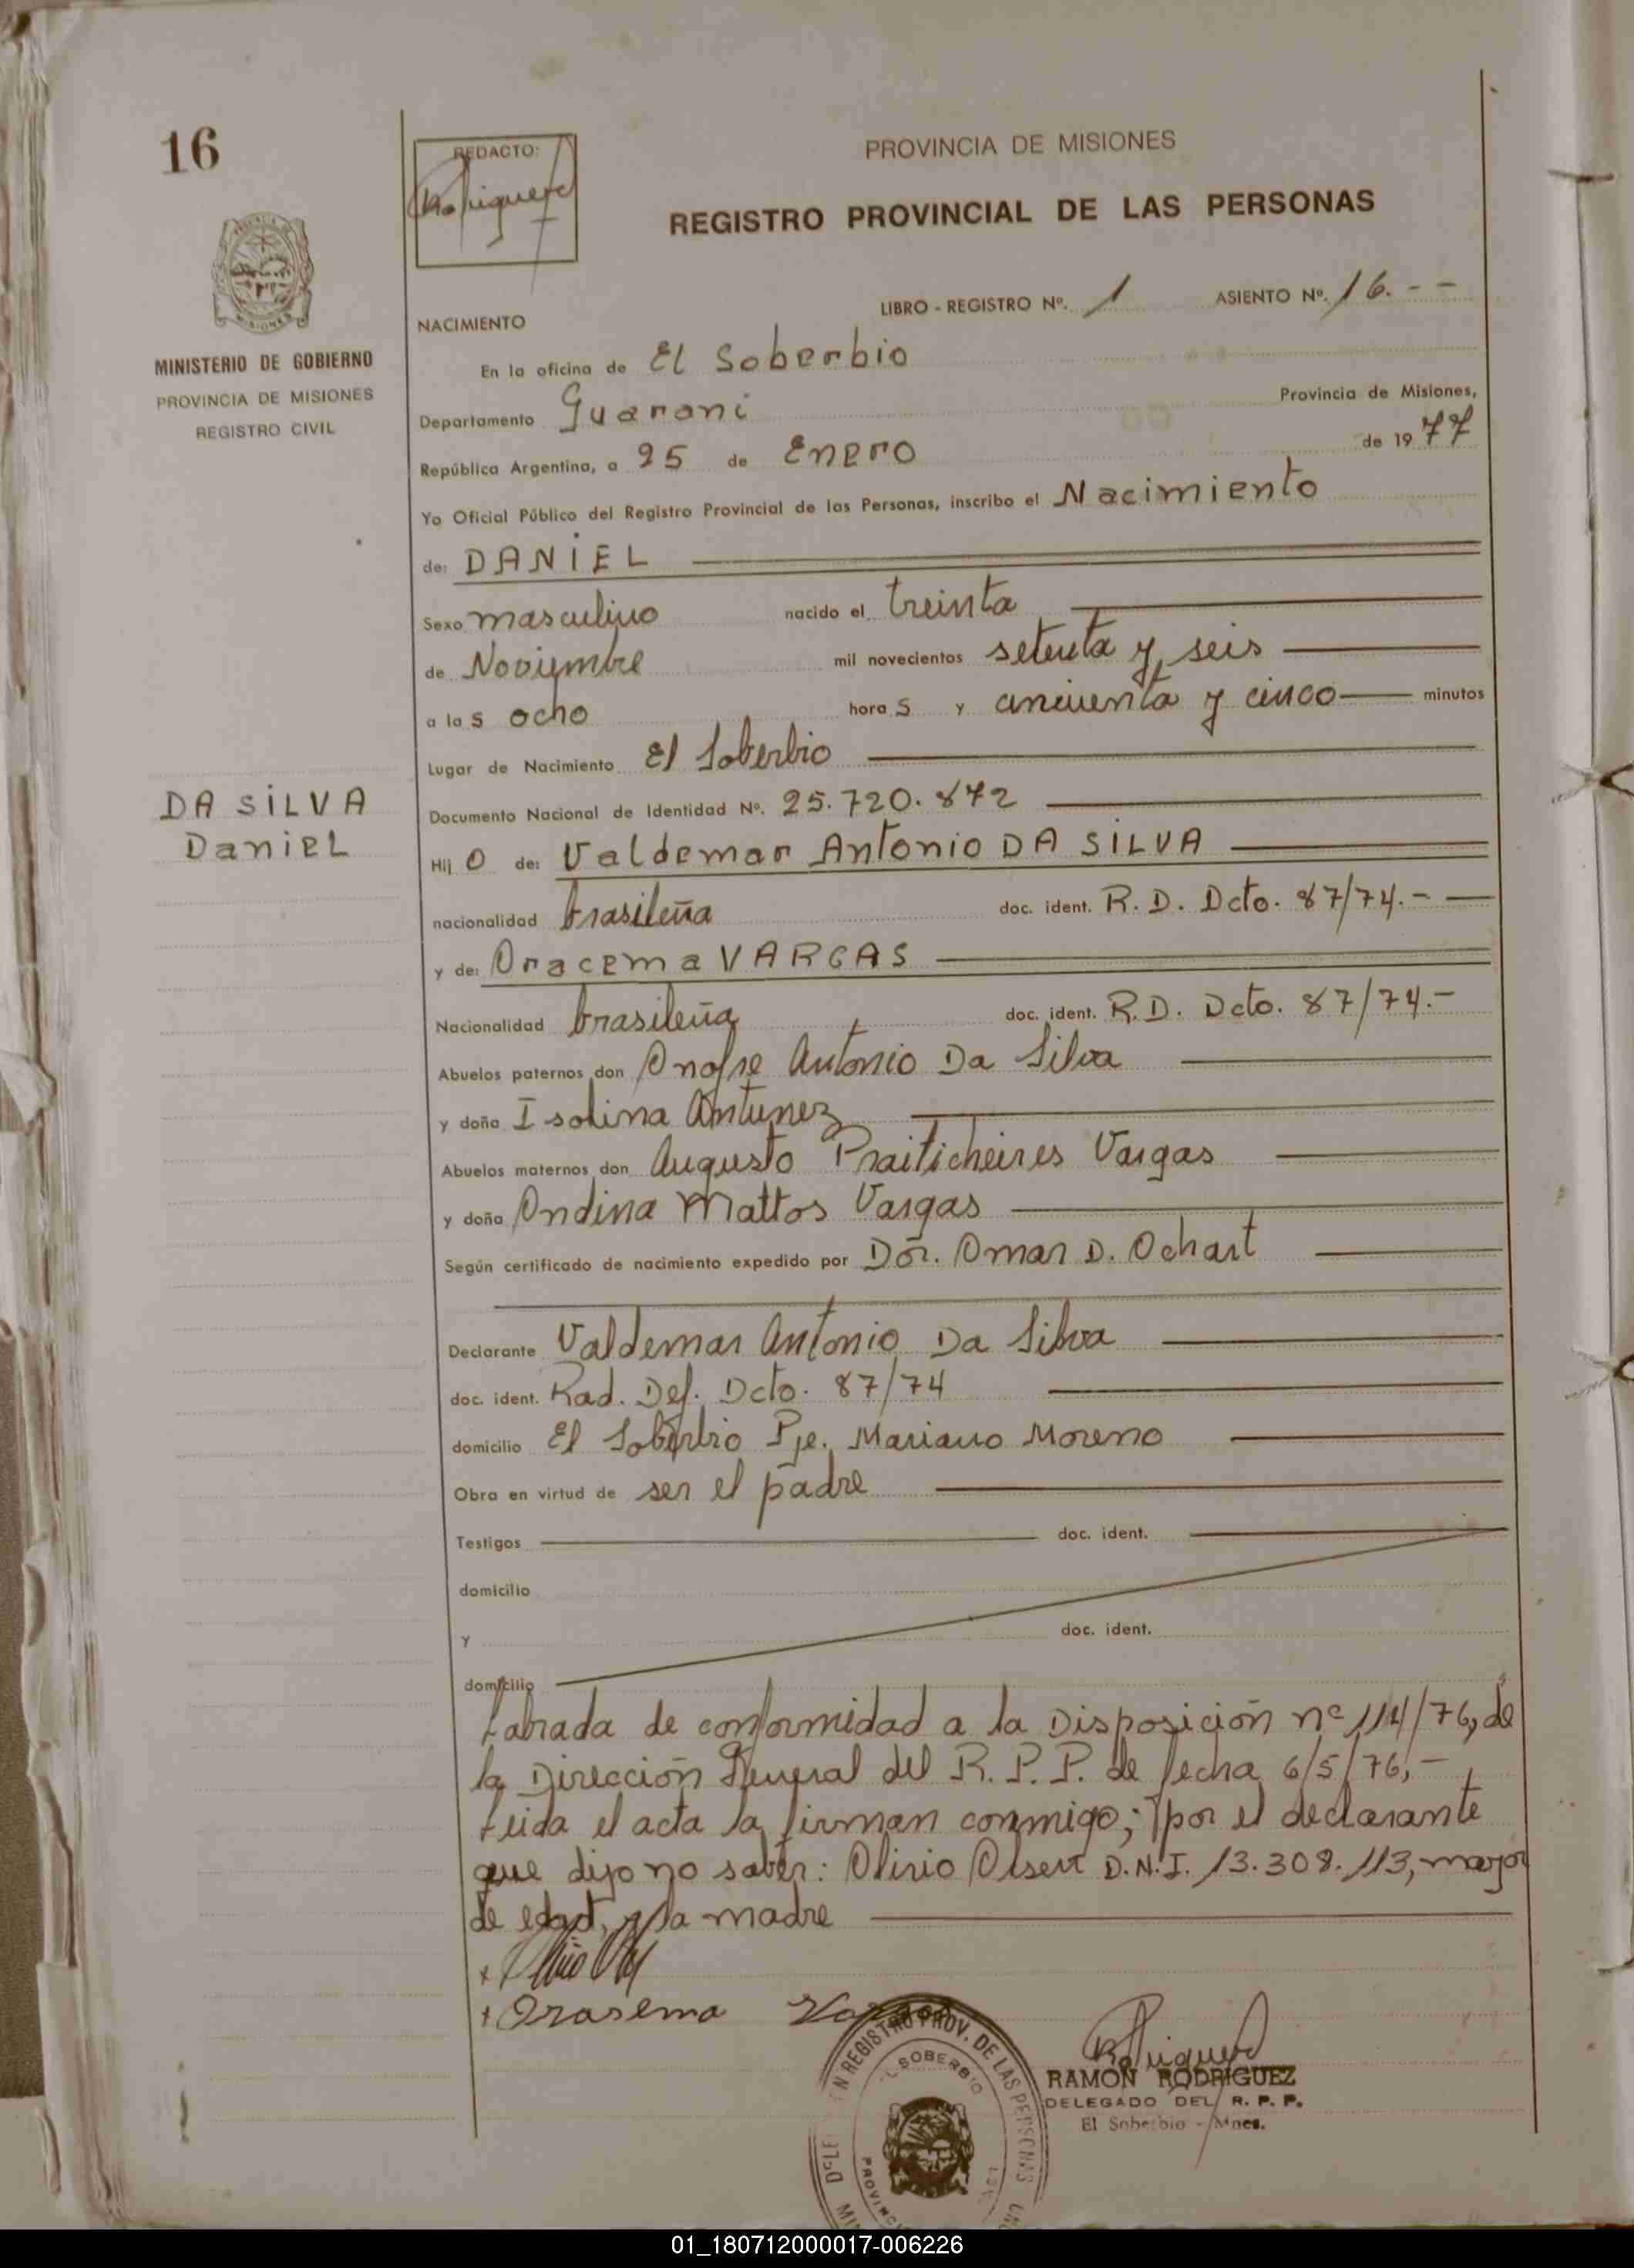 16
REDACTO:
PROVINCIA DE MISIONES
REGISTRO PROVINCIAL DE LAS PERSONAS
LIBRO - REGISTRO Nº. 1 ASIENTO Nº. 16. - -
NACIMIENTO
MINISTERIO DE GOBIERNO
PROVINCIA DE MISIONES
REGISTRO CIVIL
En la oficina de El Soberbio
Departamento Guarani Provincia de Misiones,
República Argentina, a 25 de Enero de 1977
Yo Oficial Público del Registro Provincial de las Personas, inscribo el Nacimiento
de: DANIEL
Sexo masculino nacido el treinta
de Noviembre mil novecientos setenta y seis
a las ocho horas y cincuenta y cinco minutos
Lugar de Nacimiento El Soberbio
DA SILVA
Daniel
Documento Nacional de Identidad Nº. 25.720.872
Hijo de: Valdemar Antonio DA SILVA
nacionalidad brasileña doc. ident. R. D. Dcto. 87/74.-
y de: Oracema VARGAS
Nacionalidad brasileña doc. ident. R.D. Dcto. 87/74.-
Abuelos paternos don Onofre Antonio Da Silva
y doña Isolina Antunez
Abuelos maternos don Augusto Vargas
y doña Ondina Mattos Vargas
Según certificado de nacimiento expedido por Dor. Omar D. Ochart
Declarante Valdemar Antonio Da Silva
doc. ident. Rad. Def. Dcto. 87/74
domicilio El Soberbio Pje. Mariano Moreno
Obra en virtud de ser el padre
Testigos doc. ident.
domicilio
y doc. ident.
domicilio
Labrada de conformidad a la Disposición nº 114/76, de
la Dirección General del R. P. P. de fecha 6/5/76,-
Leida el acta la firman conmigo; por el declarante
que dijo no saber: Olirio D.N.I. 13.308.113, mayor
de edad, y la madre
Orasema Vargas
REGISTRO PROV. DE LAS PERSONAS
SOBERBIO
RAMON RODRIGUEZ
DELEGADO DEL R. P. P.
El Soberbio - Mnes.
01_180712000017-006226